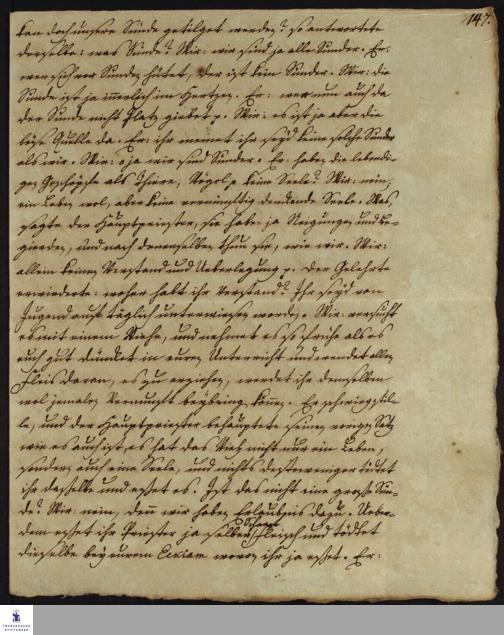 147.
kan doch unsere Sünde getilget werden? so antwortete
derselbe: was Sünde? Wir: wir sind ja alle Sünder. Er:
wer sich vor Sünden hütet, der ist kein Sünder. Wir: die
Sünde ist ja innerlich im Hertzen. Er: wer nun auch da
der Sünde nicht Platz giebet p. Wir: es ist ja aber die
böse Quelle da. Er: ihr meinet ihr seyd keine solche Sünder
als wir. Wir: o ja wir sind Sünder. Er: haben die lebendi-
gen Geschöpfe als Thiere, Vögel p keine Seele? Wir: nein,
ein Leben wol, aber keine vernünftig denkende Seele. Was,
sagte der Hauptpriester, sie haben ja Neigungen und Be-
gierden, und nach denenselben thun sie, wie wir. Wir:
allein keinen Verstand und Ueberlegung p. Der Gelehrte
erwiederte: woher habt ihr Verstand? Ihr seyd von
Jugend auf täglich unterwiesen worden. Wir: versucht
es mit einem Viehe, und nehmet es so frühe als es
euch gut dünket in euren Unterricht und wendet allen
Fleis daran, es zu erziehen, werdet ihr demselben
wol jemalen Vernunft beybringen können. Er schwieg stil-
le, und der Hauptpriester behauptete seinen vorigen Satz
wie es auch ist, es hat das Vieh nicht nur ein Leben,
sondern auch eine Seele, und nichts destoweniger tödtet
ihr dasselbe und esset es. Ist das nicht eine grosse Sün-
de? Wir: nein, denn wir haben Erlaubnis dazu. Ueber-
dem esset ihr Priester ja selber Schaaf Fleisch und tödtet
dieselbe bey eurem Eckiam wovon ihr ja esset. Er:
FRANCKESCHE
STIFTUNGEN